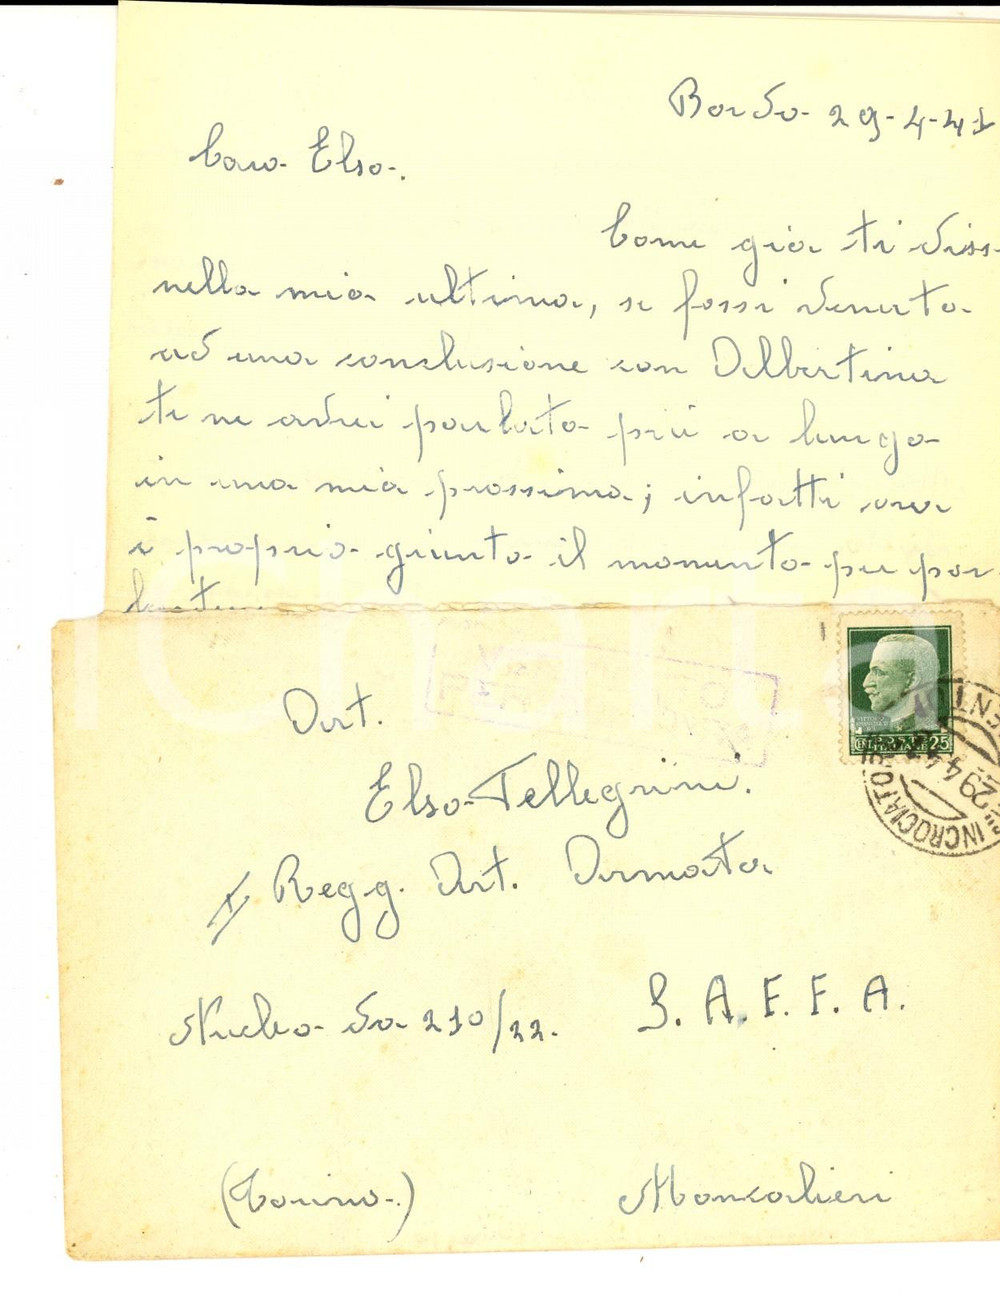 Bordo 29-4-41
Caro Elso.
Come già ti diss
nella mia ultima, se fossi venuto
ad una conclusione con Albertina
te ne avrei parlato più a lungo
in una mia prossima; infatti ora
è proprio giunto il momento per par
Art.
Elso Pellegrini.
I Regg. Art. Armata
Nucleo da 210/22. S.A.F.F.A.
(Torino) Moncalieri
POSTE ITALIANE
CENT. 25
INCROCIATO
29 4
iCharta